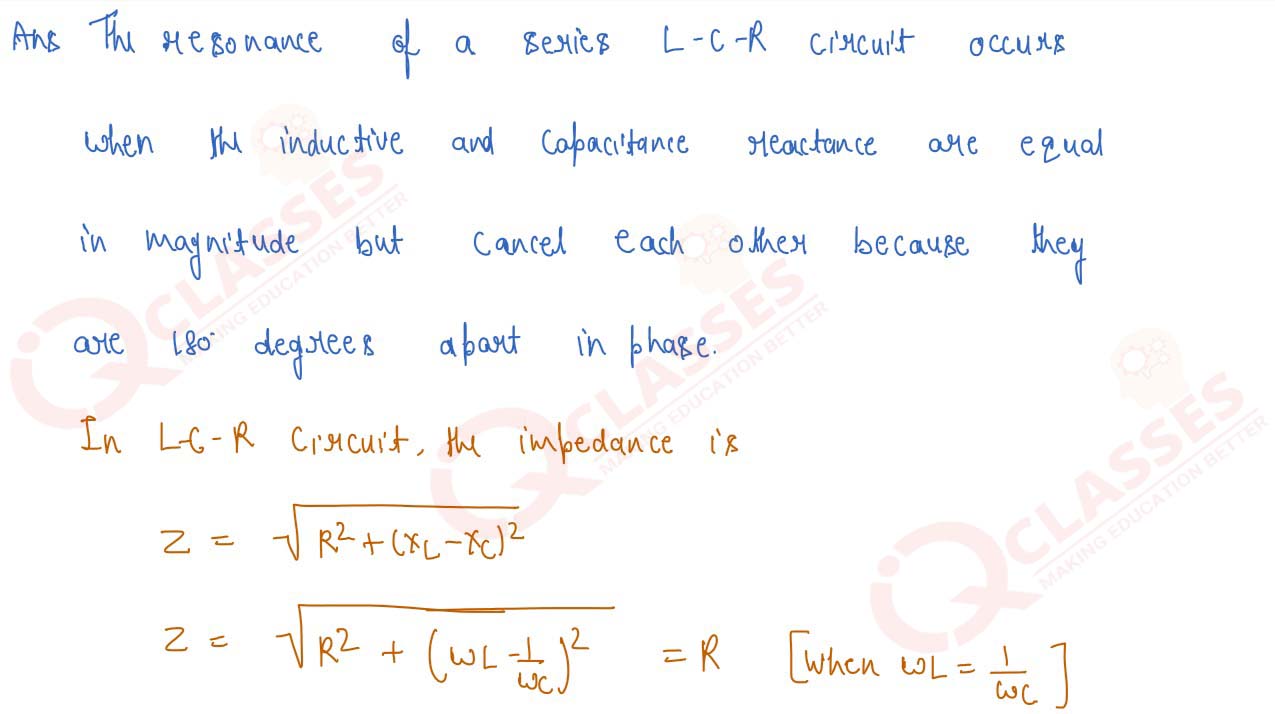 Ans The resonance of a series L-C-R circuit occurs
when the inductive and capacitance reactance are equal
in magnitude but cancel each other because they
are 180° degrees apart in phase.
In L-C-R circuit, the impedance is
Z = √(R² + (X_L - X_C)²)
Z = √(R² + (ωL - 1/ωC)²) = R [when ωL = 1/ωC]
IQ CLASSES
MAKING EDUCATION BETTER
IQ CLASSES
MAKING EDUCATION BETTER
IQ CLASSES
MAKING EDUCATION BETTER